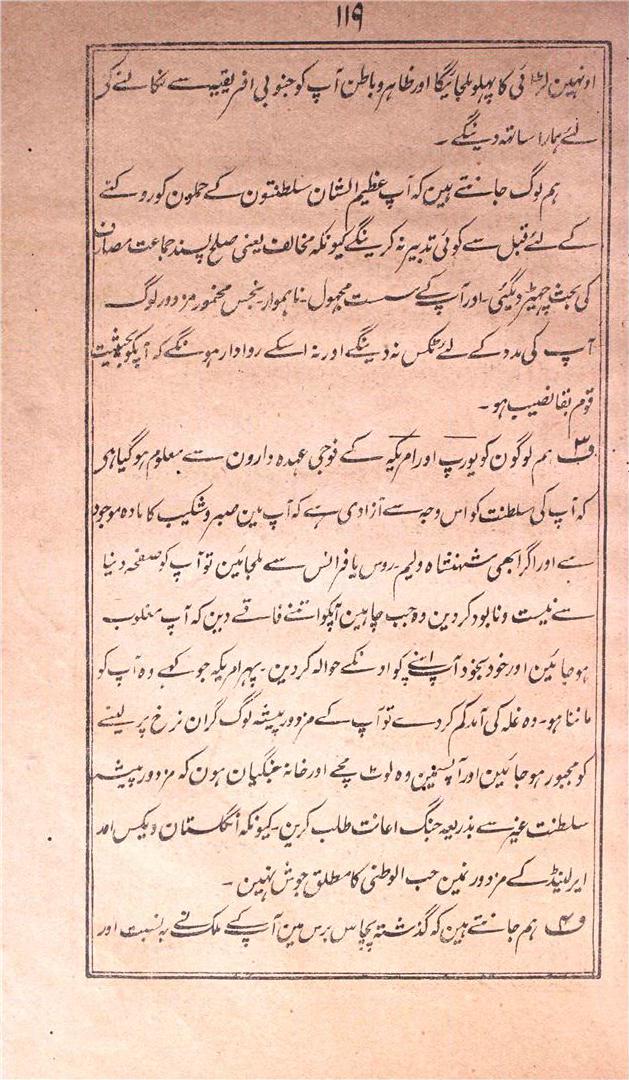 ۱۱۹
اونہین لڑائی کا پہلو ملجائیگا اور ظاہر و باطن آپ کو جنوبی افریقیہ سے نکالنے کے
لئے ہمارا ساتھ دینگے ۔
ہم لوگ جانتے ہین کہ آپ عظیم الشان سلطنتون کے حملون کو روکنے
کے لئے قبل سے کوئی تدبیر نہ کرینگے کیونکہ مخالف یعنی صلح پسند جماعت مصارف
کی بحث چہیڑ دیگی ۔ اور آپ کے سست مجہول ۔ ناہموار ۔ نجس مخمور مزدور لوگ
آپ کی مدد کے لئے ٹکس نہ دینگے اور نہ اسکے روادار ہونگے کہ آپکو بحیثیت
قوم بقا نصیب ہو ۔
ف۳ ہم لوگون کو یورپ اور امریکہ کے فوجی عہدہ دارون سے معلوم ہو گیا ہی
کہ آپ کی سلطنت کو اس وجہ سے آزادی ہے کہ آپ مین صبر و شکیب کا مادہ موجود
ہے اور اگر ابھی شہنشاہ ولیم ۔ روس یا فرانس سے ملجائین تو آپ کو صفحہ دنیا
سے نیست و نابود کر دین وہ جب چاہین آپکو اتنے فاقے دین کہ آپ مغلوب
ہو جائین اور خود بخود آپ اپنے کو اونکے حوالہ کر دین ۔ پہر امریکہ جو کہے وہ آپ کو
ماننا ہو ۔ وہ غلہ کی آمد کم کر دے تو آپ کے مزدور پیشہ لوگ گران نرخ پر لینے
کو مجبور ہو جائین اور آپسمین وہ لوٹ مچے اور خانہ جنگیان ہون کہ مزدور پیشہ
سلطنت غیر سے بذریعہ جنگ اعانت طلب کرین ۔ کیونکہ انگلستان ویلس اور
ایرلینڈ کے مزدورنمین حب الوطنی کا مطلق جوش نہین ۔
ف۴ ہم جانتے ہین کہ گذشتہ پچاس برس مین آپ کے ملک نے بہ نسبت اور